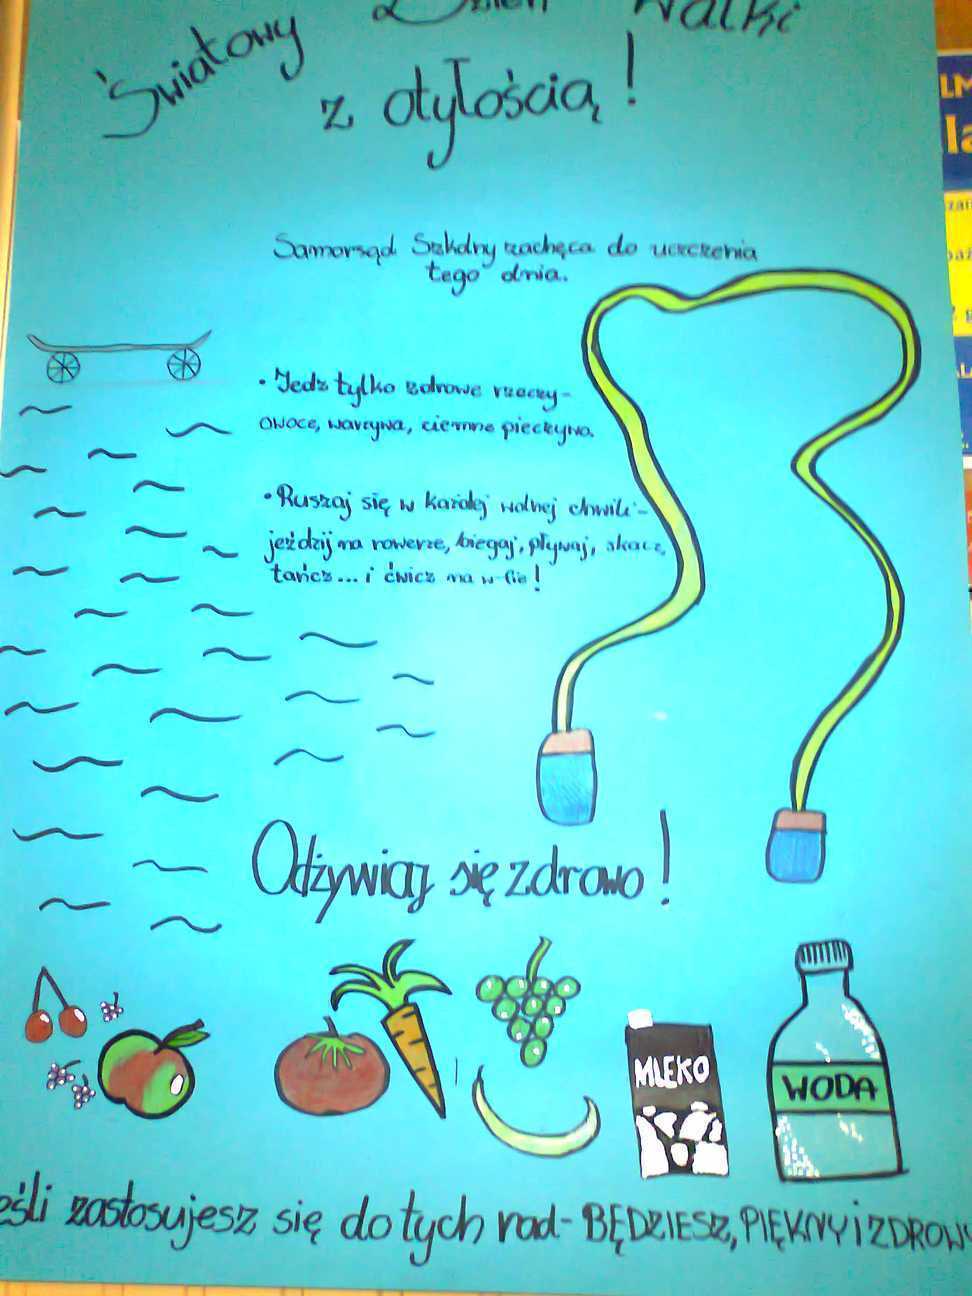 Światowy Dzień Walki
z otyłością!
Samorząd Szkolny zachęca do uczczenia
tego dnia.
• Jedz tylko zdrowe rzeczy-
owoce, warzywa, ciemne pieczywo.
• Ruszaj się w każdej wolnej chwili-
jeździj na rowerze, biegaj, pływaj, skacz,
tańcz... i ćwicz na w-fie!
Odżywiaj się zdrowo!
MLEKO
WODA
eśli zastosujesz się do tych rad- BĘDZIESZ, PIĘKNY i ZDROWY
LM